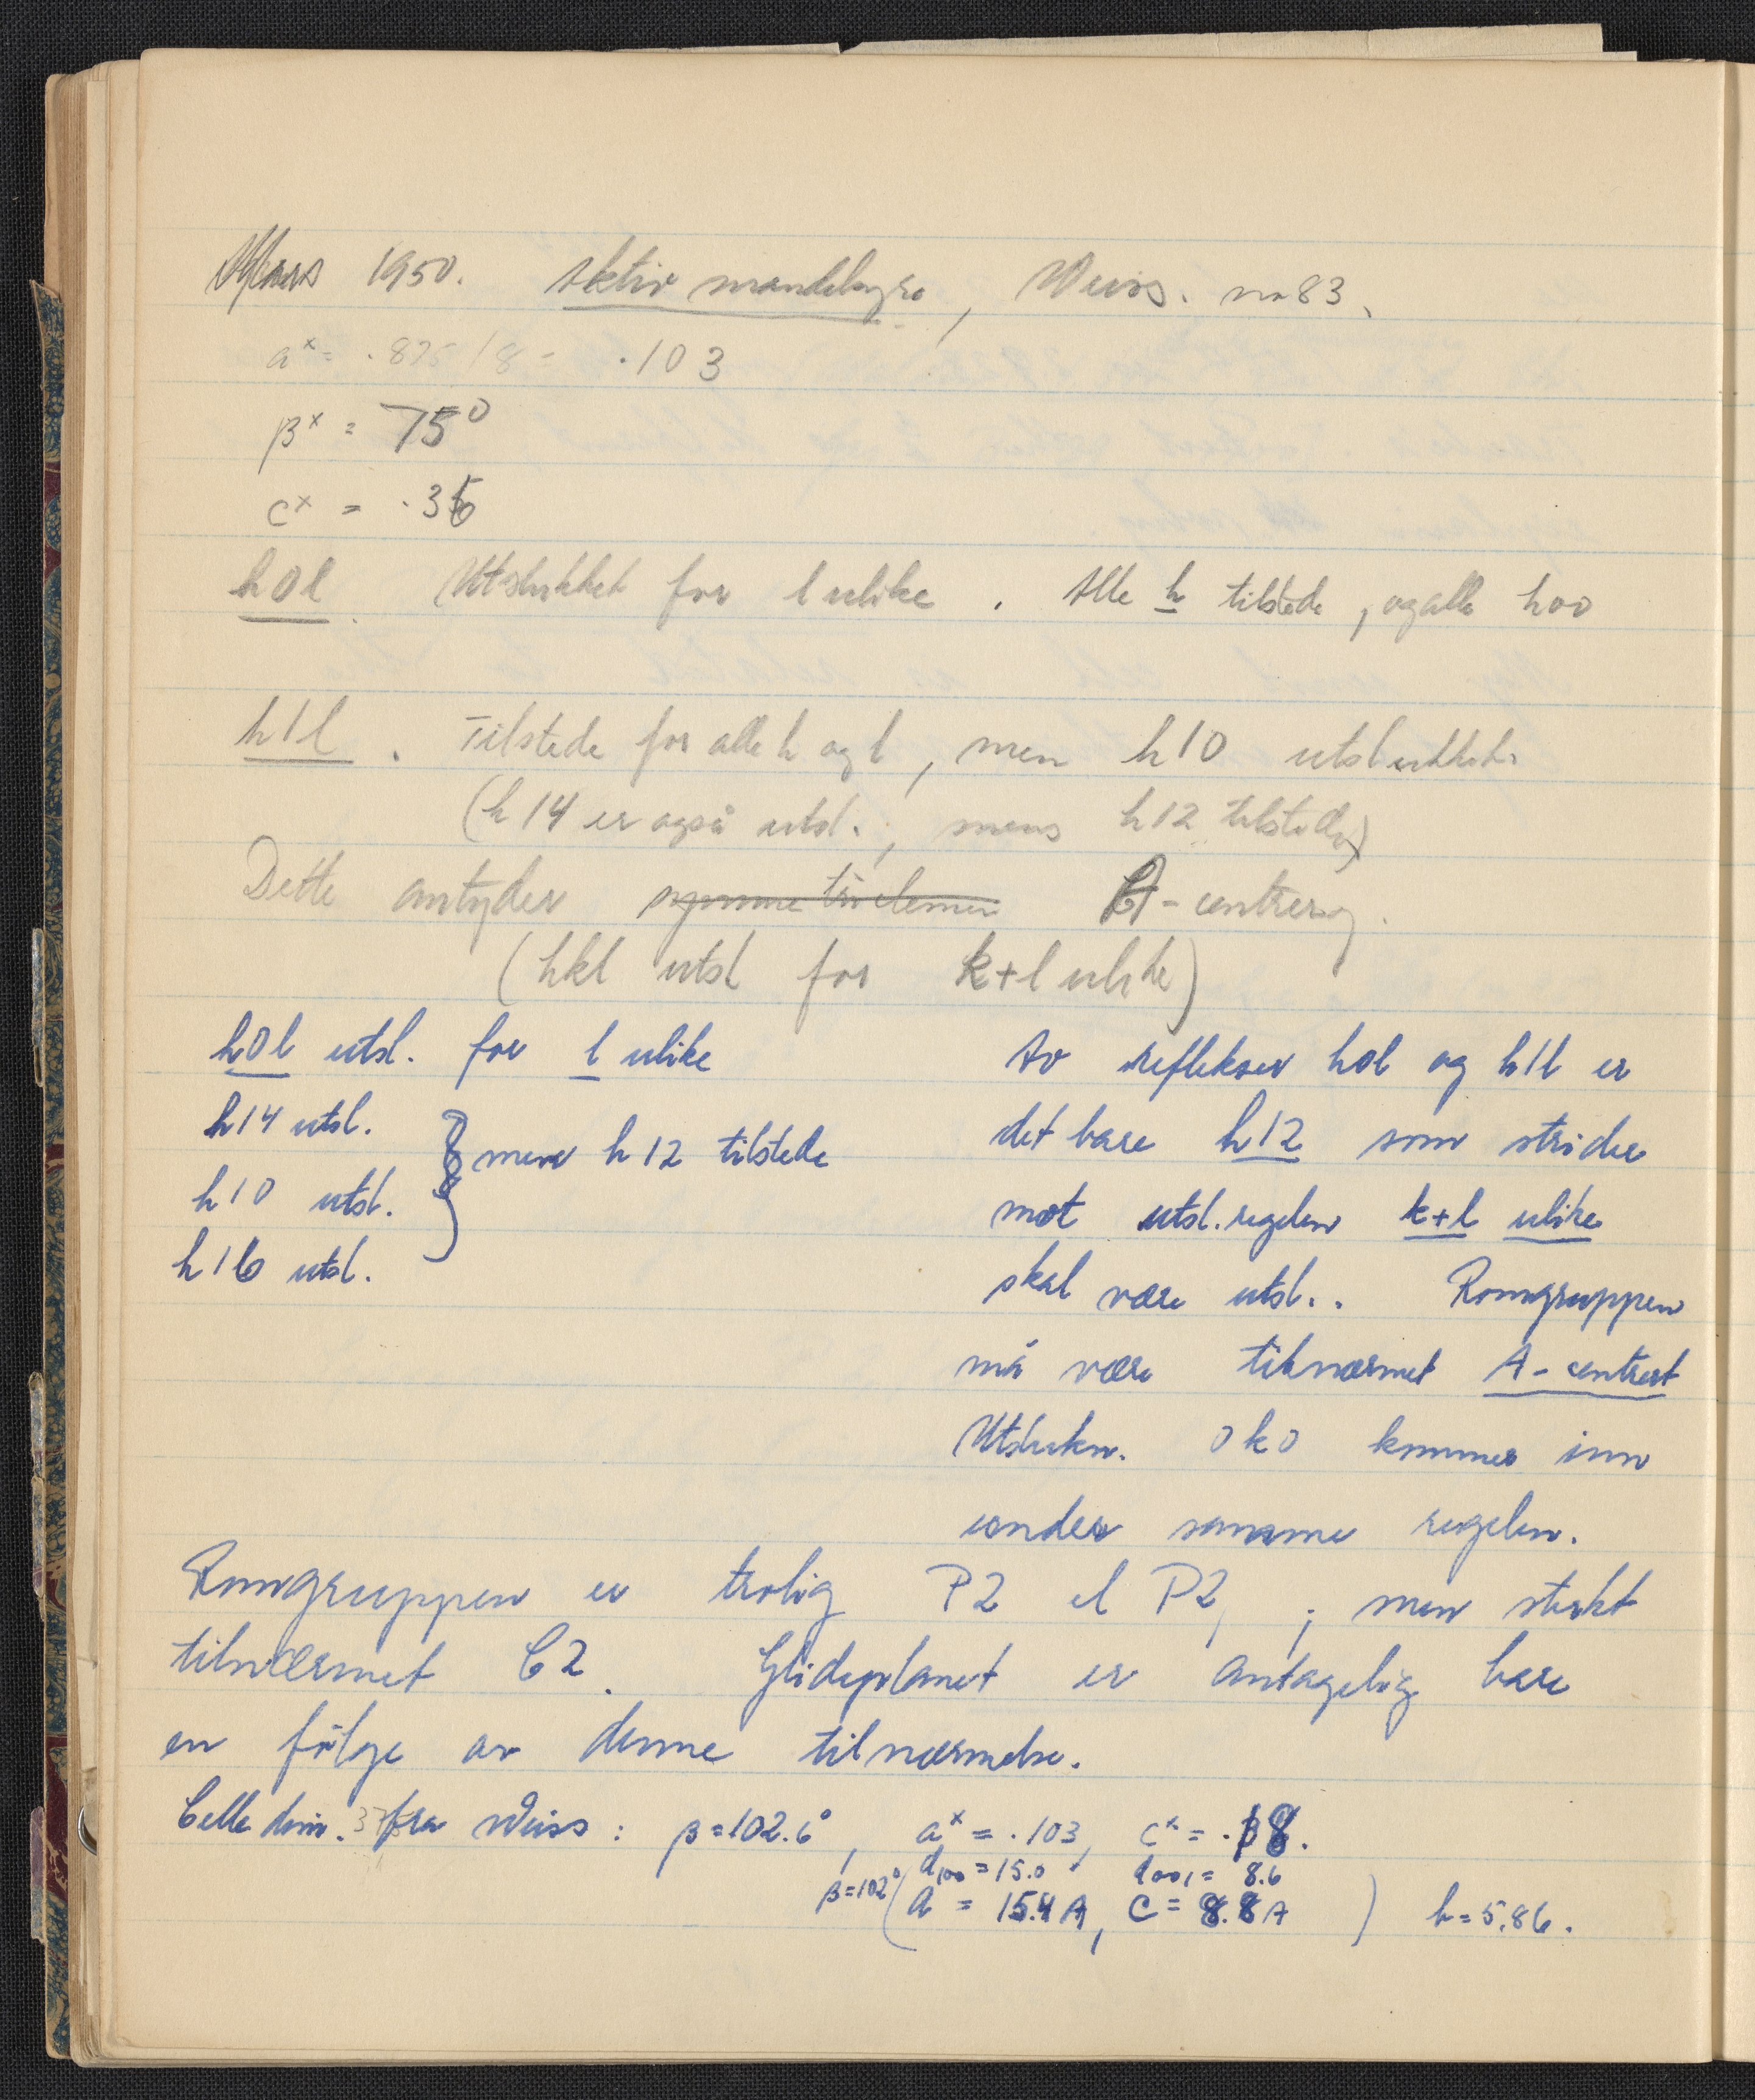 Mars 1950. Aktiv mandelsyre, Weiss. nr 83.
a* = .825/8 = .103
β* = 75°
c* = .36
h0l Utslukket for l ulike. Alle h tilstede, og alle h00
h1l. Tilstede for alle h og l, men h10 utslukket.
(h14 er også utsl., mens h12 tilstede)
Dette antyder symmetrielemen A-centrering.
(hkl utsl for k+l ulike)
h0l utsl. for l ulike
h14 utsl.
h10 utsl. } mens h12 tilstede
h16 utsl.
Av reflekser h0l og h1l er
det bare h12 som strider
mot utsl.regelen k+l ulike
skal være utsl.. Romgruppen
må være tilnærmet A-centrert
Utslukn. 0k0 kommer inn
under samme regelen.
Romgruppen er trolig P2 el P2₁; men sterkt
tilnærmet C2. Glideplanet er antagelig bare
en følge av denne tilnærmelse.
Celle dim. fra Weiss: β=102.6°, a* = .103, c* = .18.
d100 = 15.0 d001 = 8.6
β=102° (a = 15.4 A, c = 8.8 A) b=5.86.